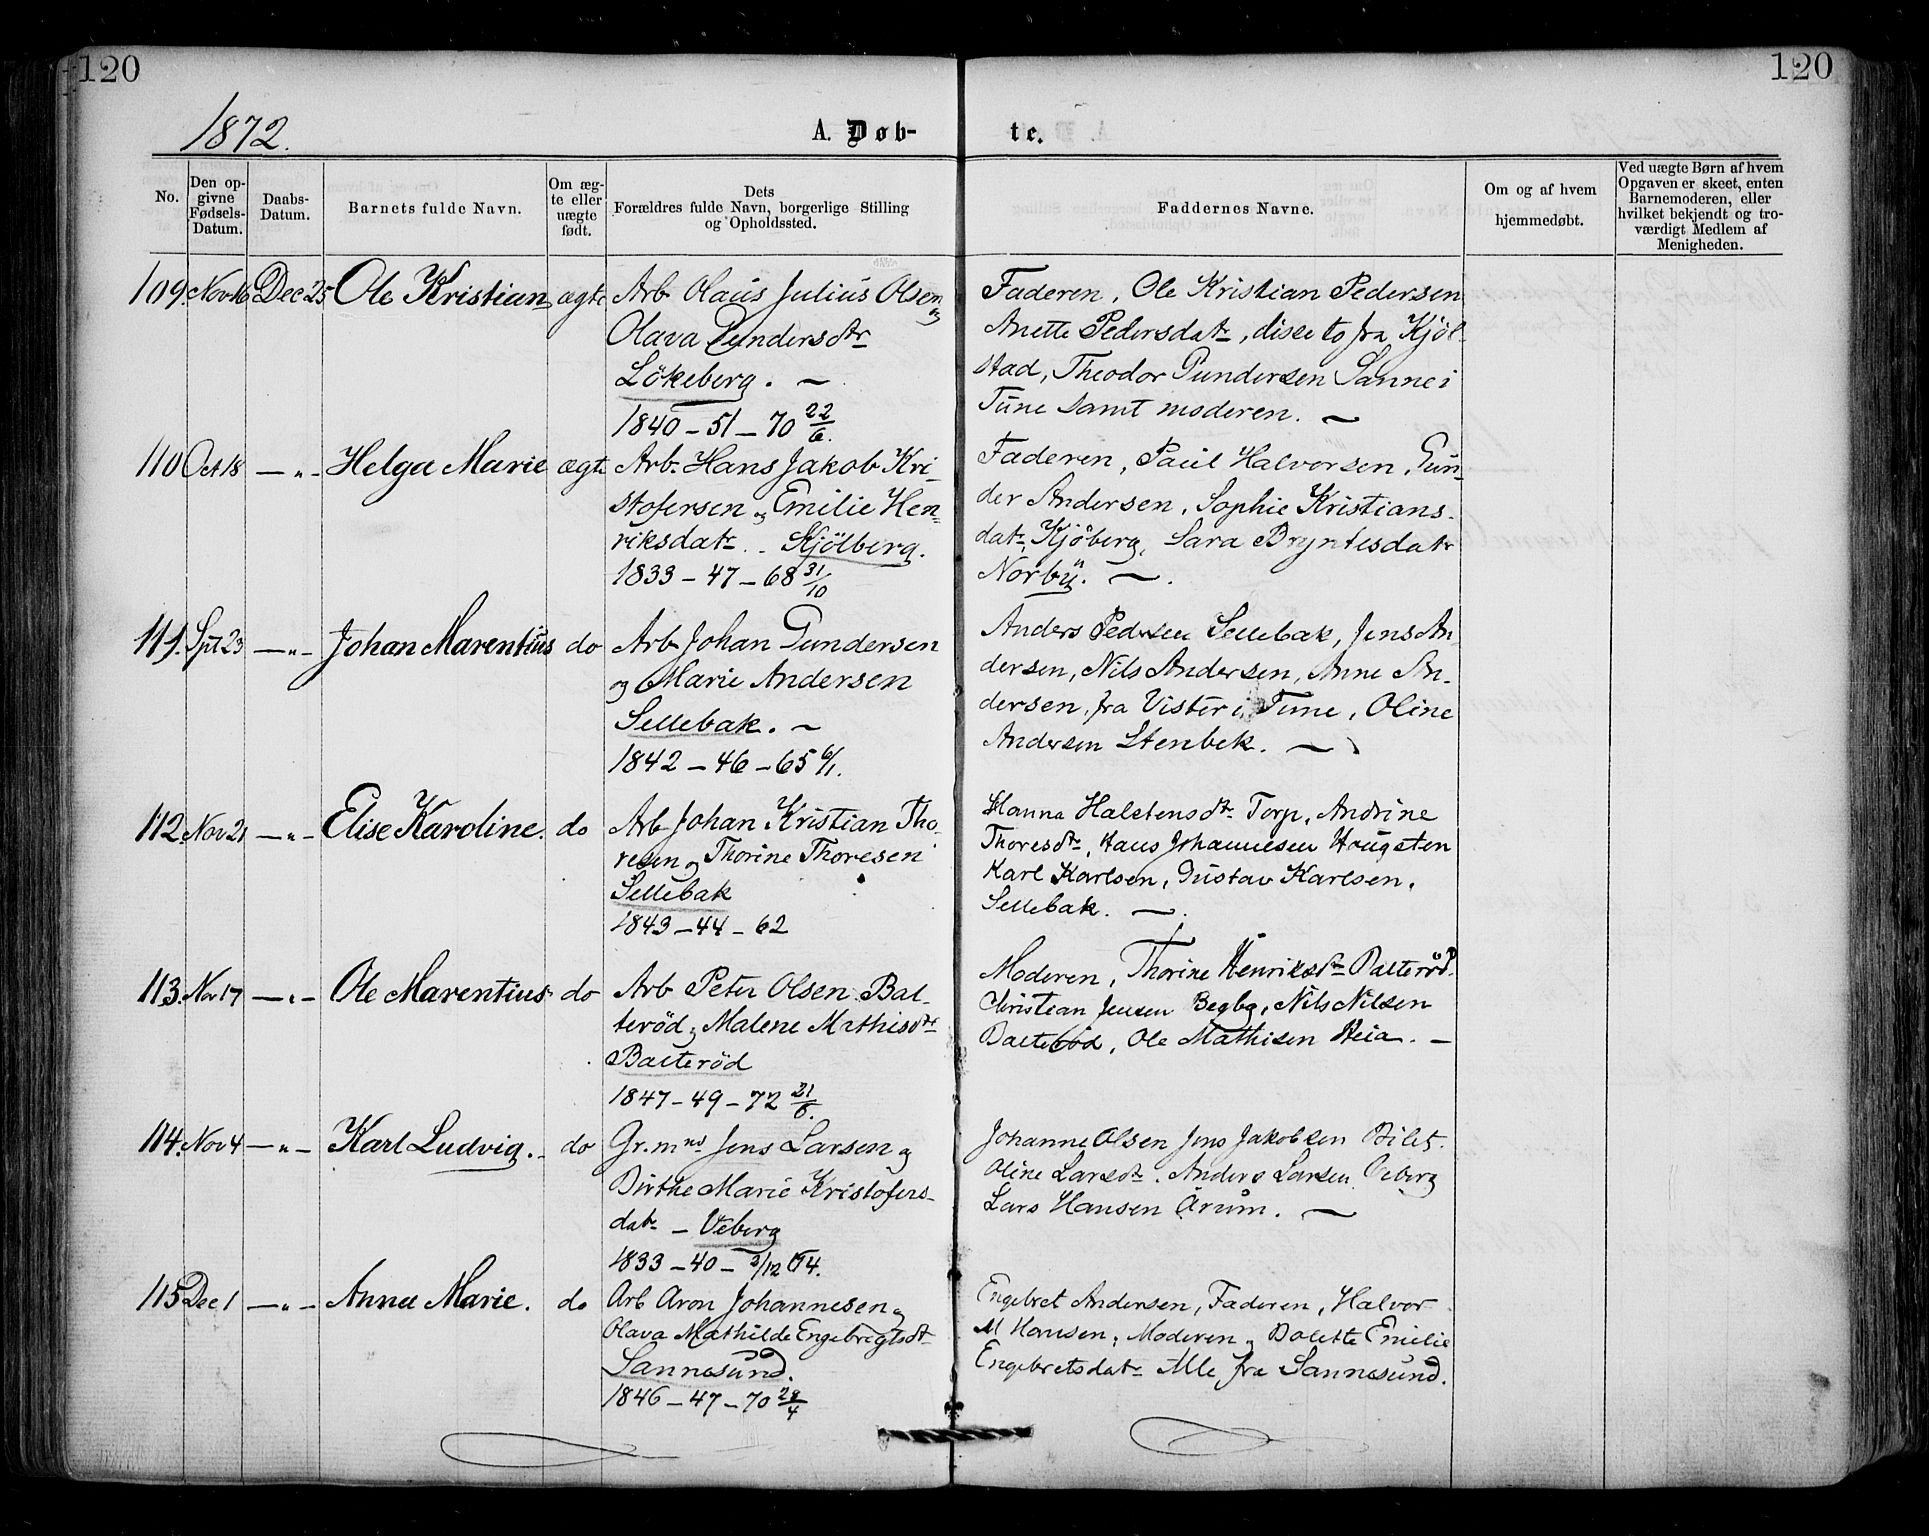 120
120
1872.
A. Døb-
te.
No.
Den op-
givne
Fødsels-
Datum.
Daabs-
Datum.
Barnets fulde Navn.
Om æg-
te eller
uægte
født.
Dets
Forældres fulde Navn, borgerlige Stilling
og Opholdssted.
Faddernes Navne.
Om og af hvem
hjemmedøbt.
Ved uægte Børn af hvem
Opgaven er skeet, enten
Barnemoderen, eller
hvilket bekjendt og tro-
værdigt Medlem af
Menigheden.
109. Nov 16 Dec 25 Ole Kristian ægte Arb Olaus Julius Olsen
og
Olava Gundersdtr
Lökeberg. —
1840 – 51 – 70 22/6.
Faderen, Ole Kristian Pedersen
Anette Pedersdatr, disse to fra Kjöl-
stad, Theodor Gundersen Sanne i
Tune samt moderen. —
110 Oct 18 — " — Helga Marie ægte Arb. Hans Jakob Kri-
stofersen og Emilie Hen-
riksdatr. – Kjölberg.
1833 – 47 – 68 31/10
Faderen, Paul Halvorsen, Gun-
der Andersen, Sophie Kristians-
datr, Kjöberg, Sara Bryntesdatr
Norby. —.
111. Spt 23 — " — Johan Marentius do Arb Johan Gundersen
og Marie Andersen
Sellebak. —
1842 – 46 – 65 6/1.
Anders Pedersen Sellebak, Jens An-
dersen, Nils Andersen, Anne An-
dersen, fra Vister i Tune, Oline
Andersen Stenbek. —
112. Nov 21 — " — Elise Karoline. do Arb Johan Kristian Tho-
resen og Thorine Thoresen
Sellebak
1843 – 44 – 62
Hanna Halstensdtr Torp, Andrine
Thoresdtr, Hans Johannesen Hougsten
Karl Karlsen, Gustav Karlsen,
Sellebak. —.
113. Nov 17 — " — Ole Marentius do Arb Peter Olsen Bal-
teröd og Malene Mathisdtr
Balteröd
1847 – 49 – 72 21/6.
Moderen, Thorine Henriksdtr Balteröd.
Christian Jensen Begby, Nils Nilsen
Balteröd, Ole Mathisen Heia. —
114. Nov 4 — " — Karl Ludvig. do Gr.mns Jens Larsen og
Birthe Marie Kristofers-
datr – Veberg
1833 – 40 – 3/12 64.
Johanne Olsen Jens Jakobsen Bilet.
Oline Larsdtr. Anders Larsen Veberg
Lars Hansen Årum. —
115 Dec 1 — " — Anna Marie. do Arb Aron Johannesen og
Olava Mathilde Engebregtsdt
Sannesund.
1846 – 47 – 70 28/4
Engebret Andersen, Faderen, Halvor
M Hansen, Moderen og Bolette Emilie
Engebretsdatr Alle fra Sannesund.